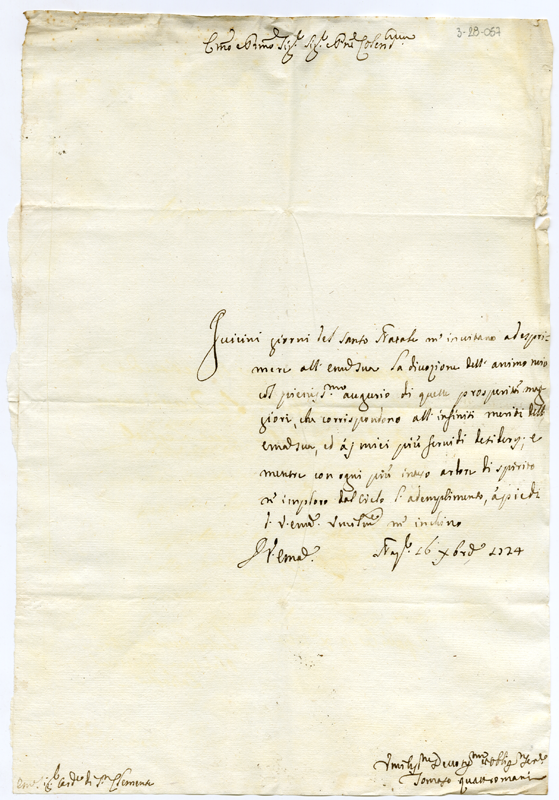 3-28-057
Emo e Rmo Sig.r Sig.r e Pne Colend.mo
I vicini giorni del Santo Natale m'invitano ad espri=
mere all'Em.a Sua la divozione dell'animo mio
col pieniss.mo augurio di quelle prosperità mag
giori, che corrispondono all'infiniti meriti dell'
Em.a Sua, ed à i miei più fervidi desiderj; e
mentre con ogni più inteso ardore di spirito
n'imploro dal Cielo l'adempimento, à piedi
di V. Em.a Umilm.te m'inchino
Di V. Em.a Nap.li 16 Xbre 1724
Umiliss.mo Devotiss.mo Oblig.mo Ser.re
Tomaso quattromani
Sig.r Card.le di S.n Clemente